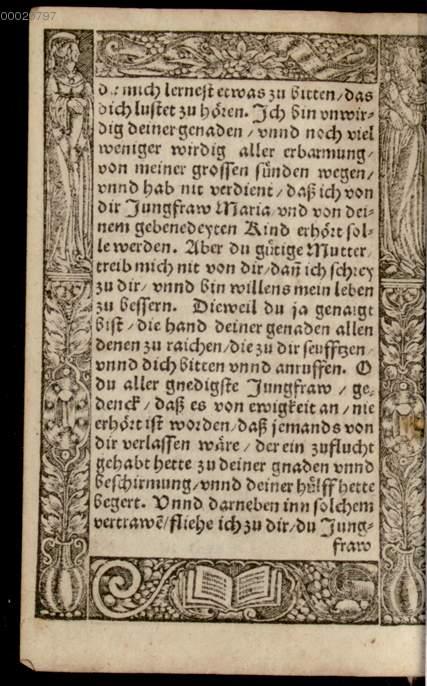 00020797
du mich lernest etwas zu bitten/das
dich lustet zu hören. Ich bin vnwir-
dig deiner genaden / vnnd noch viel
weniger wirdig aller erbarmung/
von meiner grossen sünden wegen/
vnnd hab nit verdient / daß ich von
dir Jungfraw Maria/ vnd von dei-
nem gebenedeyten Kind erhört sol-
le werden. Aber du gütige Mutter/
treib mich nit von dir/dañ ich schrey
zu dir/ vnnd bin willens mein leben
zu bessern. Dieweil du ja genaigt
bist / die hand deiner genaden allen
denen zu raichen/die zu dir seufftzen/
vnnd dich bitten vnnd anruffen. O
du aller gnedigste Jungfraw / ge-
denck / daß es von ewigkeit an / nie
erhört ist worden/daß jemands von
dir verlassen wäre / der ein zuflucht
gehabt hette zu deiner gnaden vnnd
beschirmung/vnnd deiner hülff hette
begert. Vnnd darneben inn solchem
vertrawē/fliehe ich zu dir/du Jung-
fraw